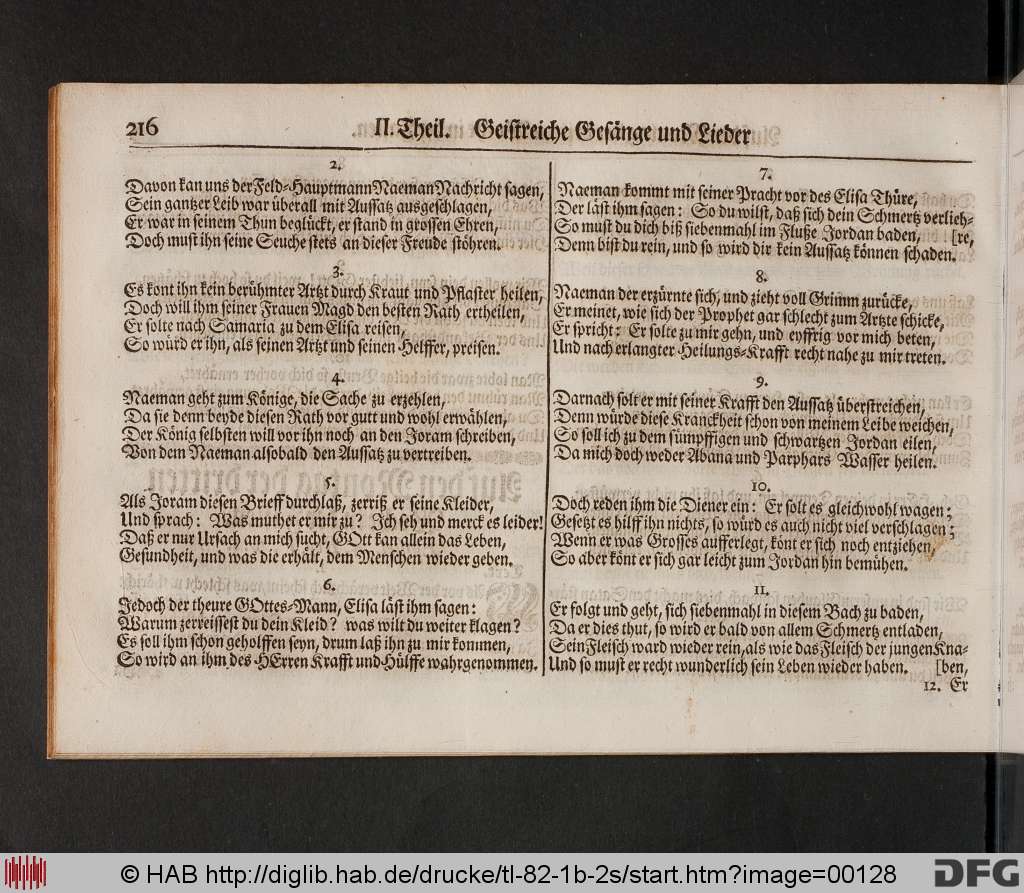 216
II. Theil. Geistreiche Gesänge und Lieder
2.
Davon kan uns der Feld-Hauptmann Naeman Nachricht sagen,
Sein gantzer Leib war überall mit Aussatz ausgeschlagen,
Er war in seinem Thun beglückt, er stand in grossen Ehren,
Doch must ihn seine Seuche stets an dieser Freude stöhren.
3.
Es kont ihn kein berühmter Artzt durch Kraut und Pflaster heilen,
Doch will ihm seiner Frauen Magd den besten Rath ertheilen,
Er solte nach Samaria zu dem Elisa reisen,
So würd er ihn, als seinen Artzt und seinen Helffer, preisen.
4.
Naeman geht zum Könige, die Sache zu erzehlen,
Da sie denn beyde diesen Rath vor gutt und wohl erwählen,
Der König selbsten will vor ihn noch an den Joram schreiben,
Von dem Naeman alsobald den Aussatz zu vertreiben.
5.
Als Joram diesen Brieff durchlaß, zerriß er seine Kleider,
Und sprach: Was muthet er mir zu? Ich seh und merck es leider!
Daß er nur Ursach an mich sucht, GOtt kan allein das Leben,
Gesundheit, und was die erhält, dem Menschen wieder geben.
6.
Jedoch der theure GOttes-Mann, Elisa läst ihm sagen:
Warum zerreissest du dein Kleid? was wilt du weiter klagen?
Es soll ihm schon geholffen seyn, drum laß ihn zu mir kommen,
So wird an ihm des HErren Krafft und Hülffe wahrgenommen.
7.
Naeman kommt mit seiner Pracht vor des Elisa Thüre,
Der läst ihm sagen: So du wilst, daß sich dein Schmertz verlieh-
So must du dich biß siebenmahl im Fluße Jordan baden, [re,
Denn bist du rein, und so wird dir kein Aussatz können schaden.
8.
Naeman der erzürnte sich, und zieht voll Grimm zurücke,
Er meinet, wie sich der Prophet gar schlecht zum Artzte schicke,
Er spricht: Er solte zu mir gehn, und eyffrig vor mich beten,
Und nach erlangter Heilungs-Krafft recht nahe zu mir treten.
9.
Darnach solt er mit seiner Krafft den Aussatz überstreichen,
Denn würde diese Kranckheit schon von meinem Leibe weichen,
So soll ich zu dem sümpffigen und schwartzen Jordan eilen,
Da mich doch weder Abana und Parphars Wasser heilen.
10.
Doch reden ihm die Diener ein: Er solt es gleichwohl wagen;
Gesetzt es hilff ihn nichts, so würd es auch nicht viel verschlagen;
Wenn er was Grosses aufferlegt, könt er sich noch entziehen,
So aber könt er sich gar leicht zum Jordan hin bemühen.
11.
Er folgt und geht, sich siebenmahl in diesem Bach zu baden,
Da er dies thut, so wird er bald von allem Schmertz entladen,
Sein Fleisch ward wieder rein, als wie das Fleisch der jungen Kna-
Und so must er recht wunderlich sein Leben wieder haben. [ben,
12. Er
© HAB http://diglib.hab.de/drucke/tl-82-1b-2s/start.htm?image=00128
DFG